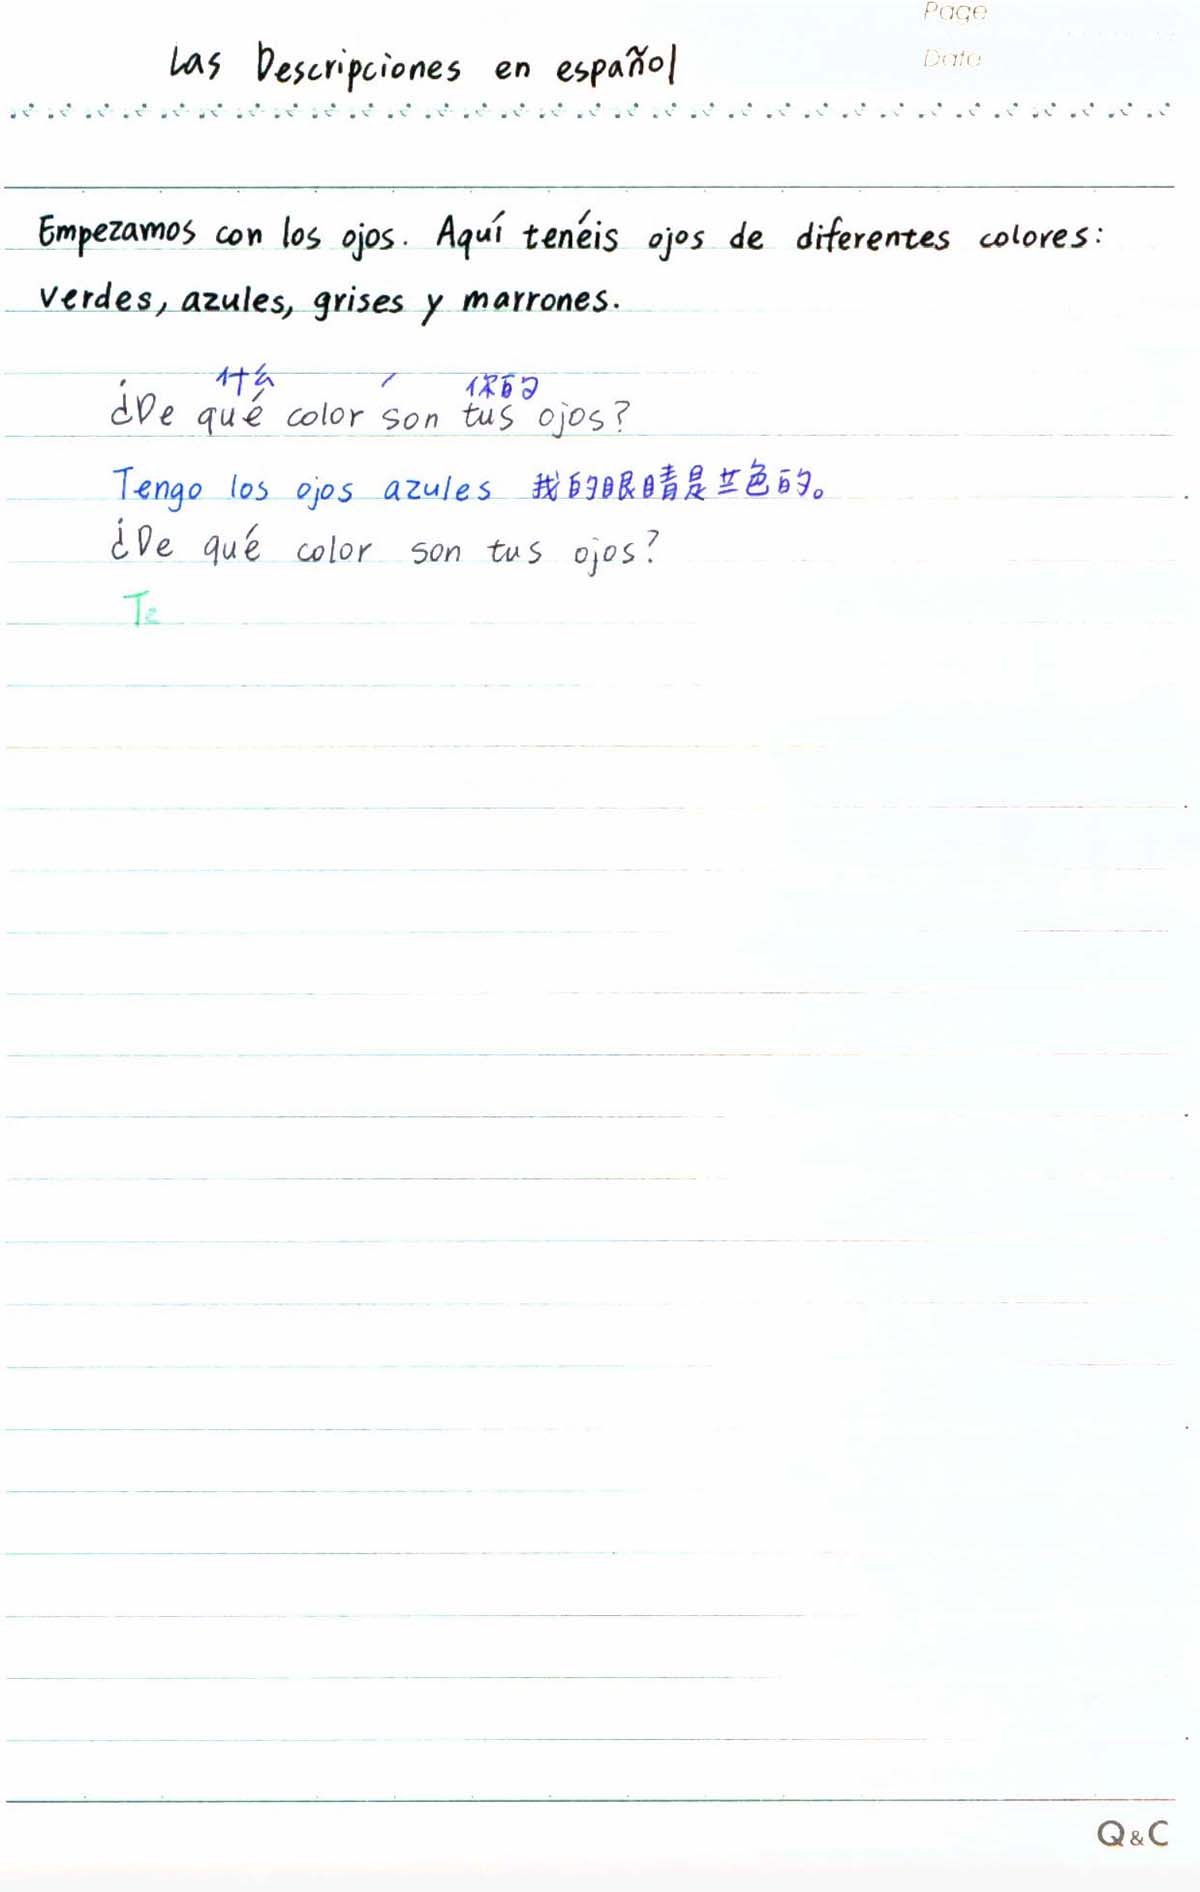 Page
Date
Las Descripciones en español
Empezamos con los ojos. Aquí tenéis ojos de diferentes colores:
verdes, azules, grises y marrones.
什么 你的
¿De qué color son tus ojos?
Tengo los ojos azules 我的眼睛是兰色的。
¿De qué color son tus ojos?
Te
Q&C